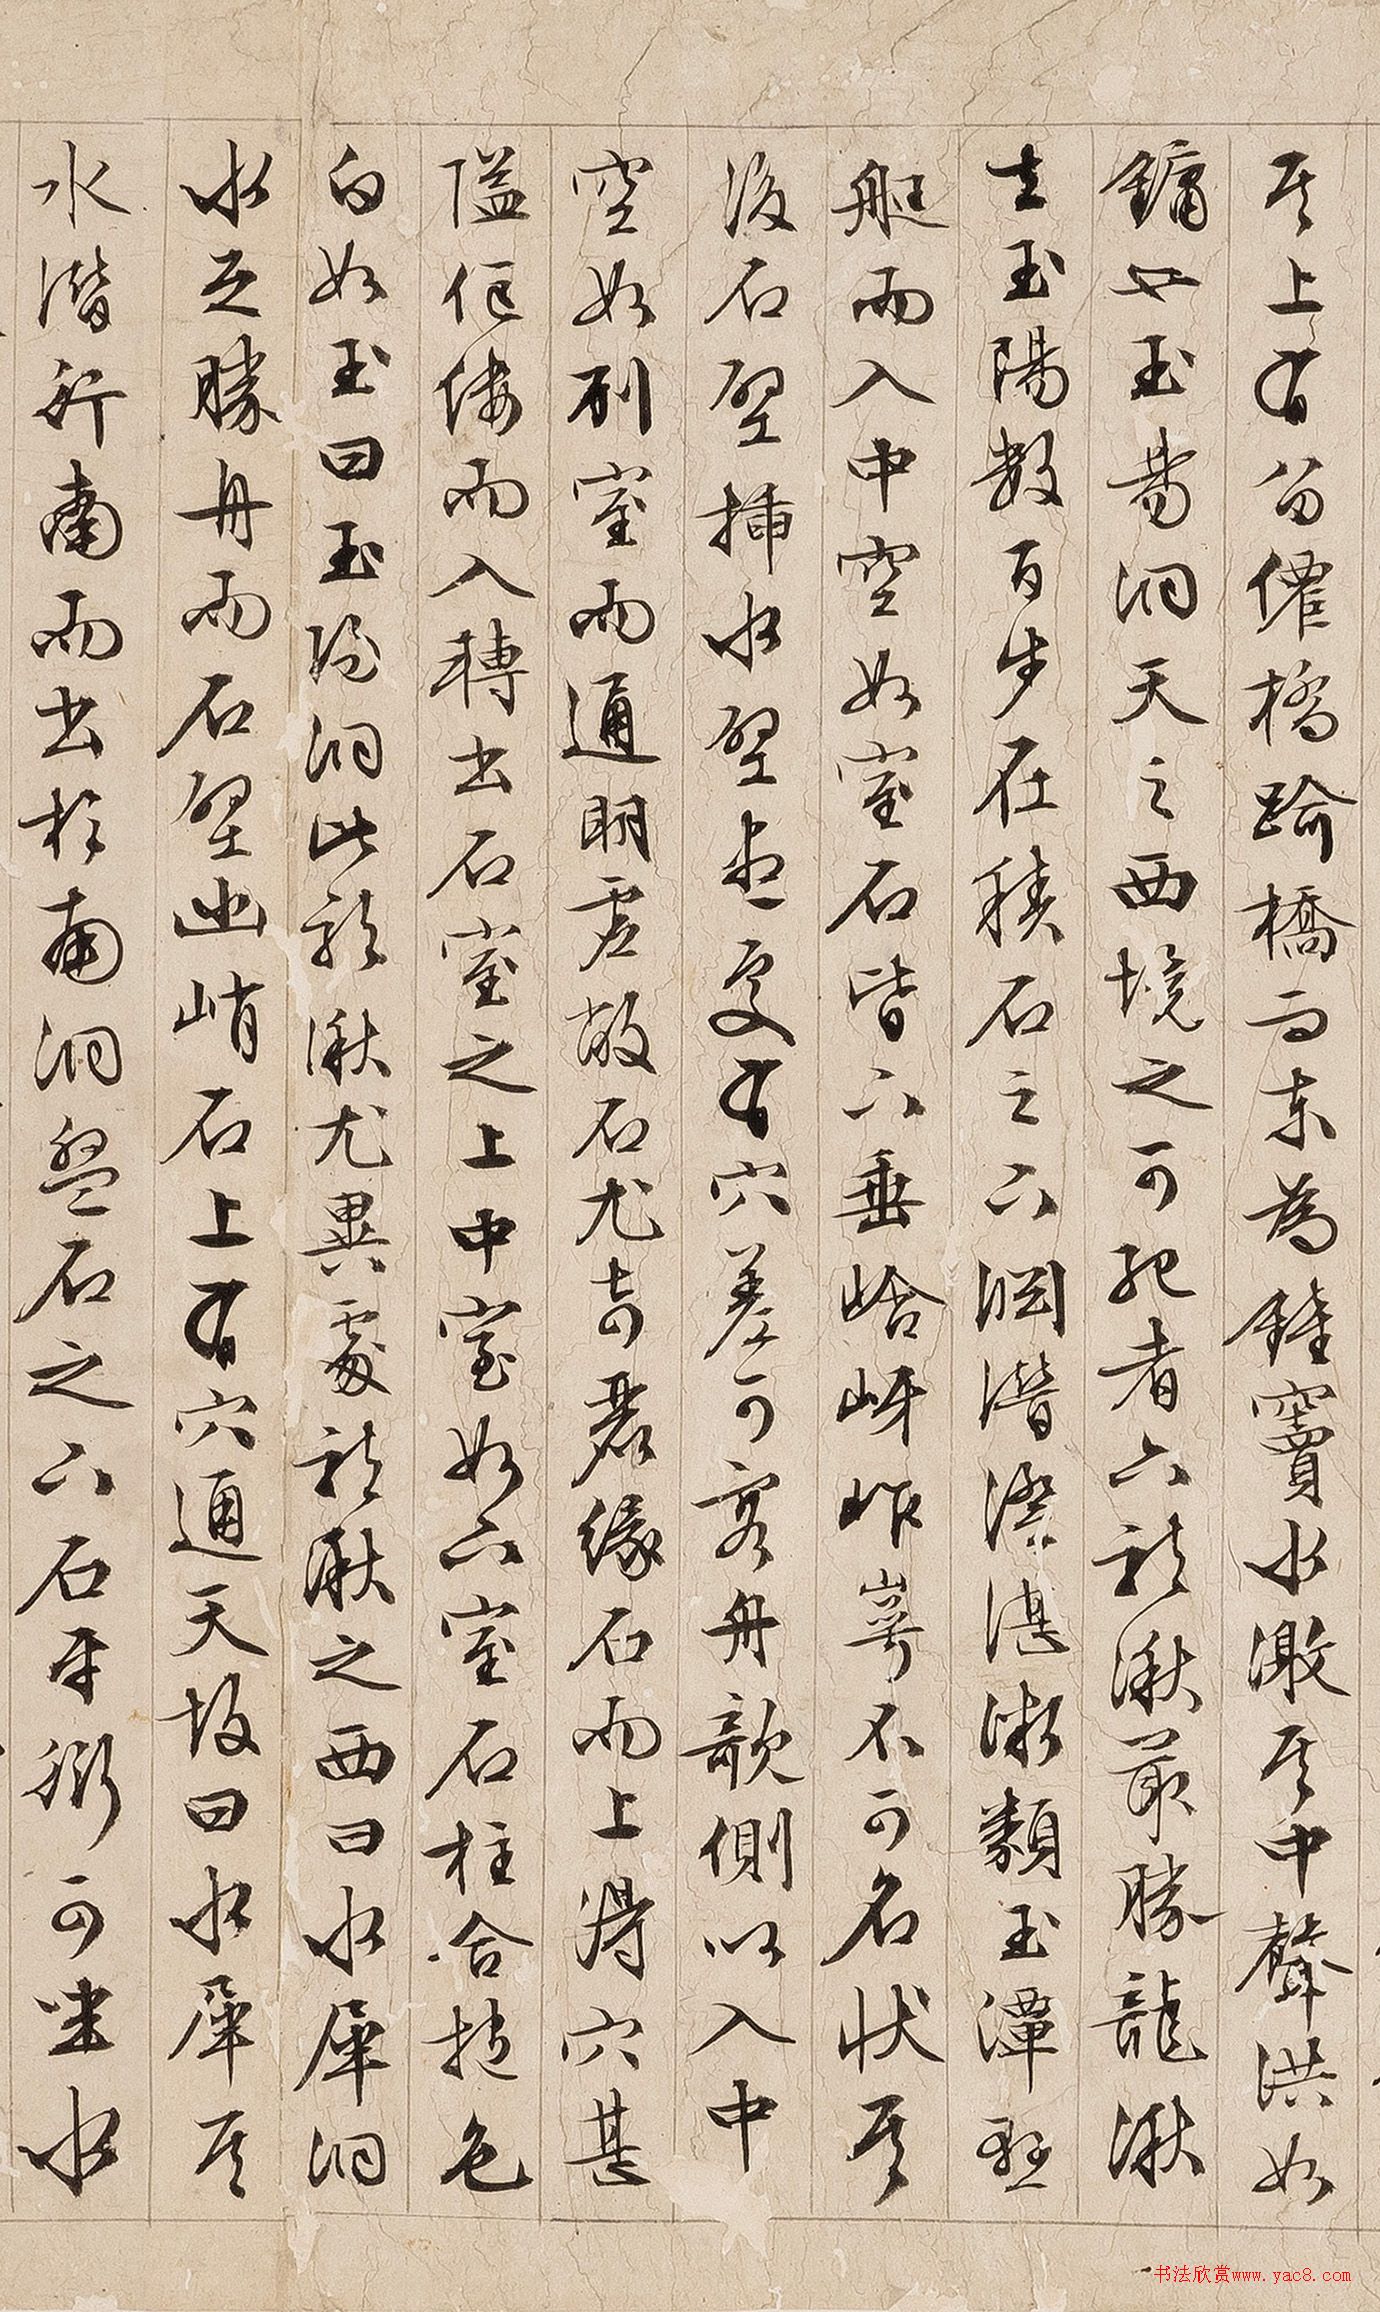 其上有曰僊橋踰橋而東為鍾竇水激其中聲洪如
鏞此玉陽洞天之西境之可記者六龍湫最勝龍湫
去玉陽數百步在積石之下淵潛深湛淑類玉潭
艇而入中空如室石皆下垂岈岞不可名狀其
後石壁插水壁盡處有穴差可容舟欹側以入中
空如列室而通明虛敞石尤奇麗緣石而上得穴甚
隘傴僂而入轉出石室之上中室如下室石柱合抱色
白如玉曰玉陽洞此龍湫尤異處龍湫之西曰水犀洞
水之勝舟而石壁幽峭石上有穴通天故曰水犀其
水潛行南而出於南洞盤石之下石可坐水
书法欣赏www.yac8.com